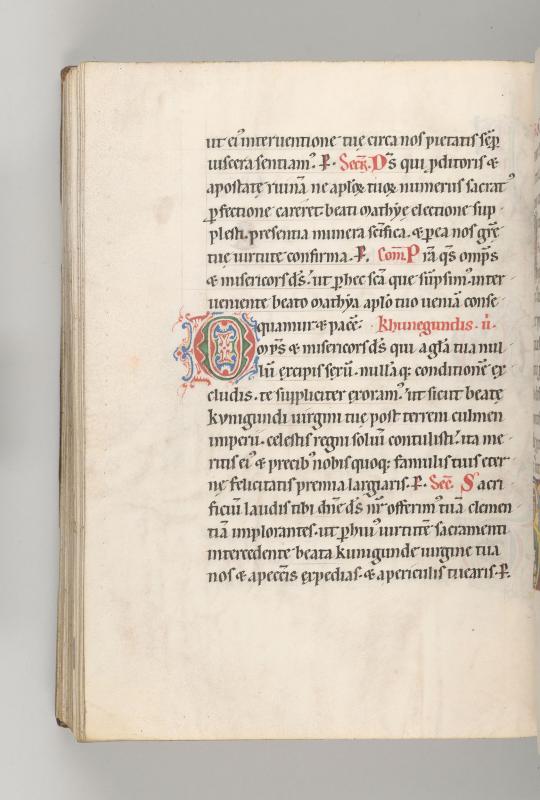 ut ei' interventione tuę circa nos pietatis sēp
uiscera sentiam'. P. Secr̄. D̄s qui p̱ditoris &
apostatę ruinā ne aploꝝ tuoꝝ numerus sacrat'
p̱fectione careret beati mathyę electione sup-
plesti. presentia munera sc̄ifica. & p̱ ea nos gr̄ę
tuę uirtute confirma. P. Com̄. P̄ra qs om̄ps
& misericors d̄s. ut p̱ hec sc̄a que sūpsim' inter
ueniente beato mathya ap̄lo tuo ueniā conse
quamur & pacē. Khunegundis. ū.
Om̄ps & misericors d̄s qui a gl̄a tua nul
lū excipis sexū. nullāq; conditionē ex
cludis. te suppliciter exoram'. ut sicut beatę
kvnigundi uirgini tuę post terreni culmen
imperii. celestis regni soliū contulisti. ita me
ritis ei' & precib' nobis quoq; famulis tuis eter
nę felicitatis premia largiaris. P. Sec̄. Sacri
ficiū laudis tibi dn̄e d̄s nr̄ offerim' tuā clemen
tiā implorantes. ut p̱ hui' uirtutē sacramenti
intercedente beata kunigunde uirgine tua
nos & a pecc̄is expedias. & a periculis tuearis. P.